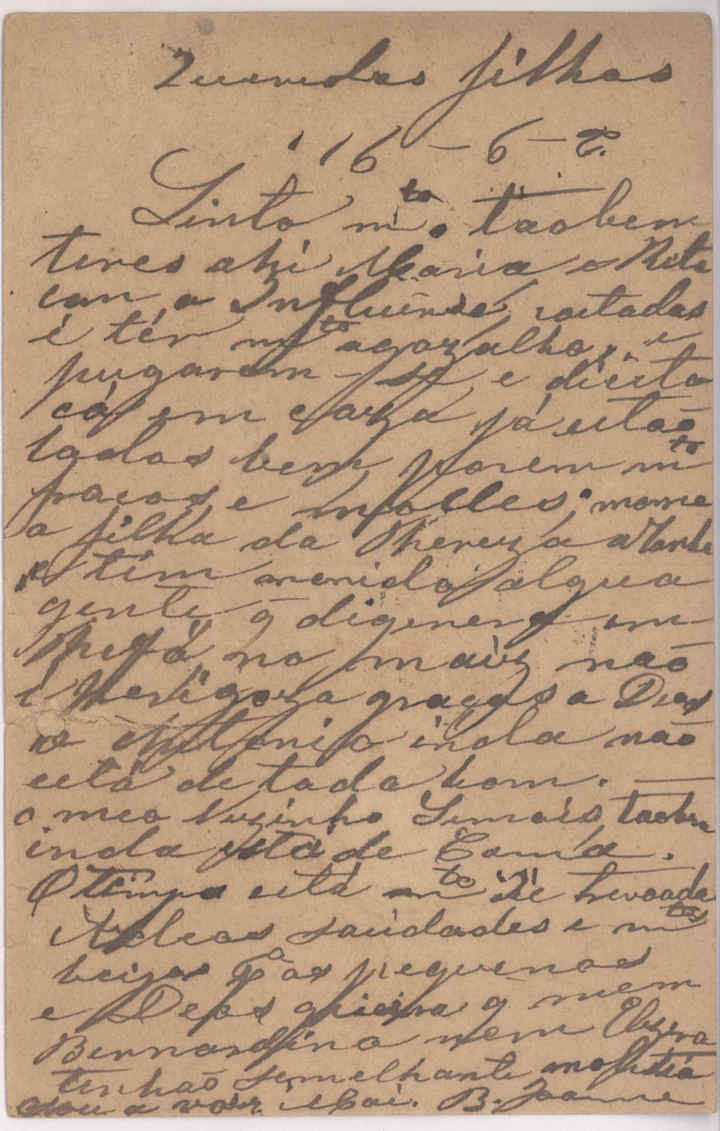 Queridas filhas
16-6-
Sinto mto taobem
teres ahi Maria e Rita
com a Influênsé, coitadas
é tér mto agazalho, e
pugarem-se e dieita
cá em caza já estão
todos bem porem mto
fracos e molles; morre
a filha da Thereza
e têm morrido algua
gente, q̃ digenero em
no mais não
é perigoza graças a Deos
o Antonio inda não
está de todo bom.
o meo vezinho Simois taobem
inda está de Cama.
O tempo está mto de trevoada
Adeos saudades e mtos
beijos pa os pequenos
e Deos queira q̃ nem
Bernardino nem Elzira
tenhão semelhante molestia
sou a vossa Mai. B. Joanna